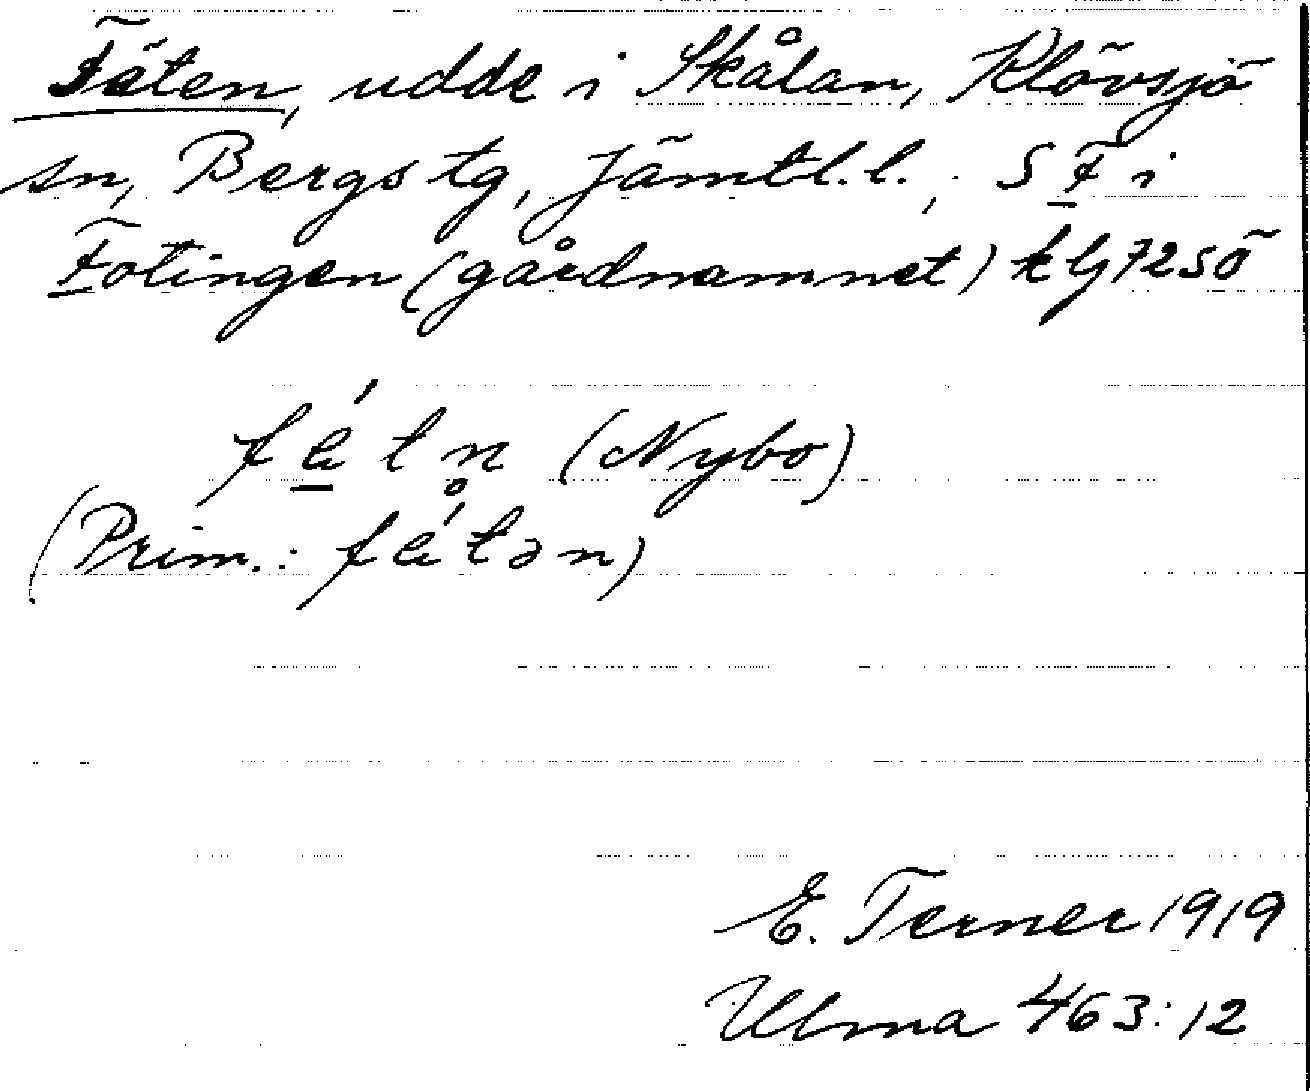 Fäten, udde i Skålan, Klövsjö
sn, Bergs tg, Jämtl.l., S F i
Fotingen (gårdnamnet) kg 7250
fætn̥ (Nybo)
(Prim.: fǽtən)
E. Terner 1919
Ulma 463:12